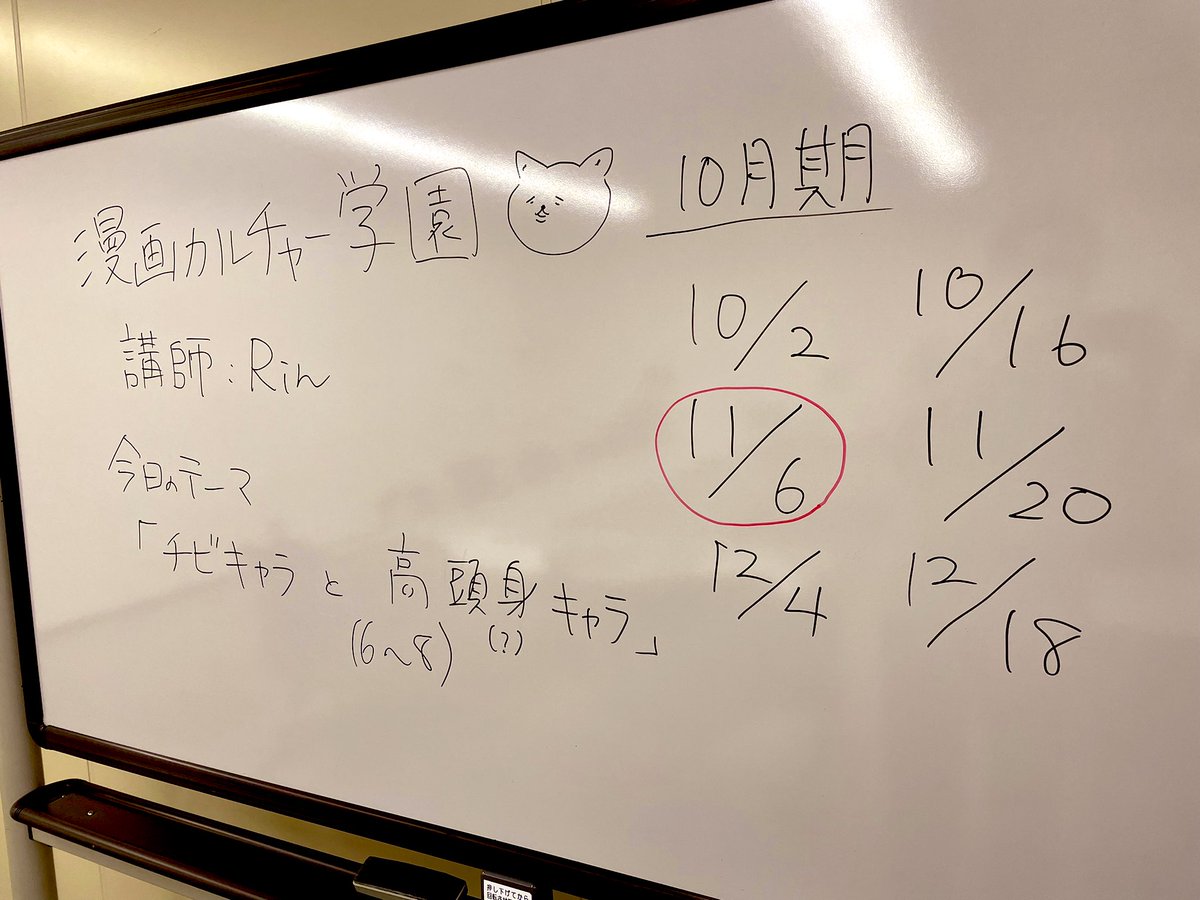 漫画カルチャー学園
講師：Rin
今日のテーマ
「チビキャラと高頭身キャラ」
(6〜8) (?)
10月期
10/2 10/16
11/6 11/20
12/4 12/18
押し下げてから